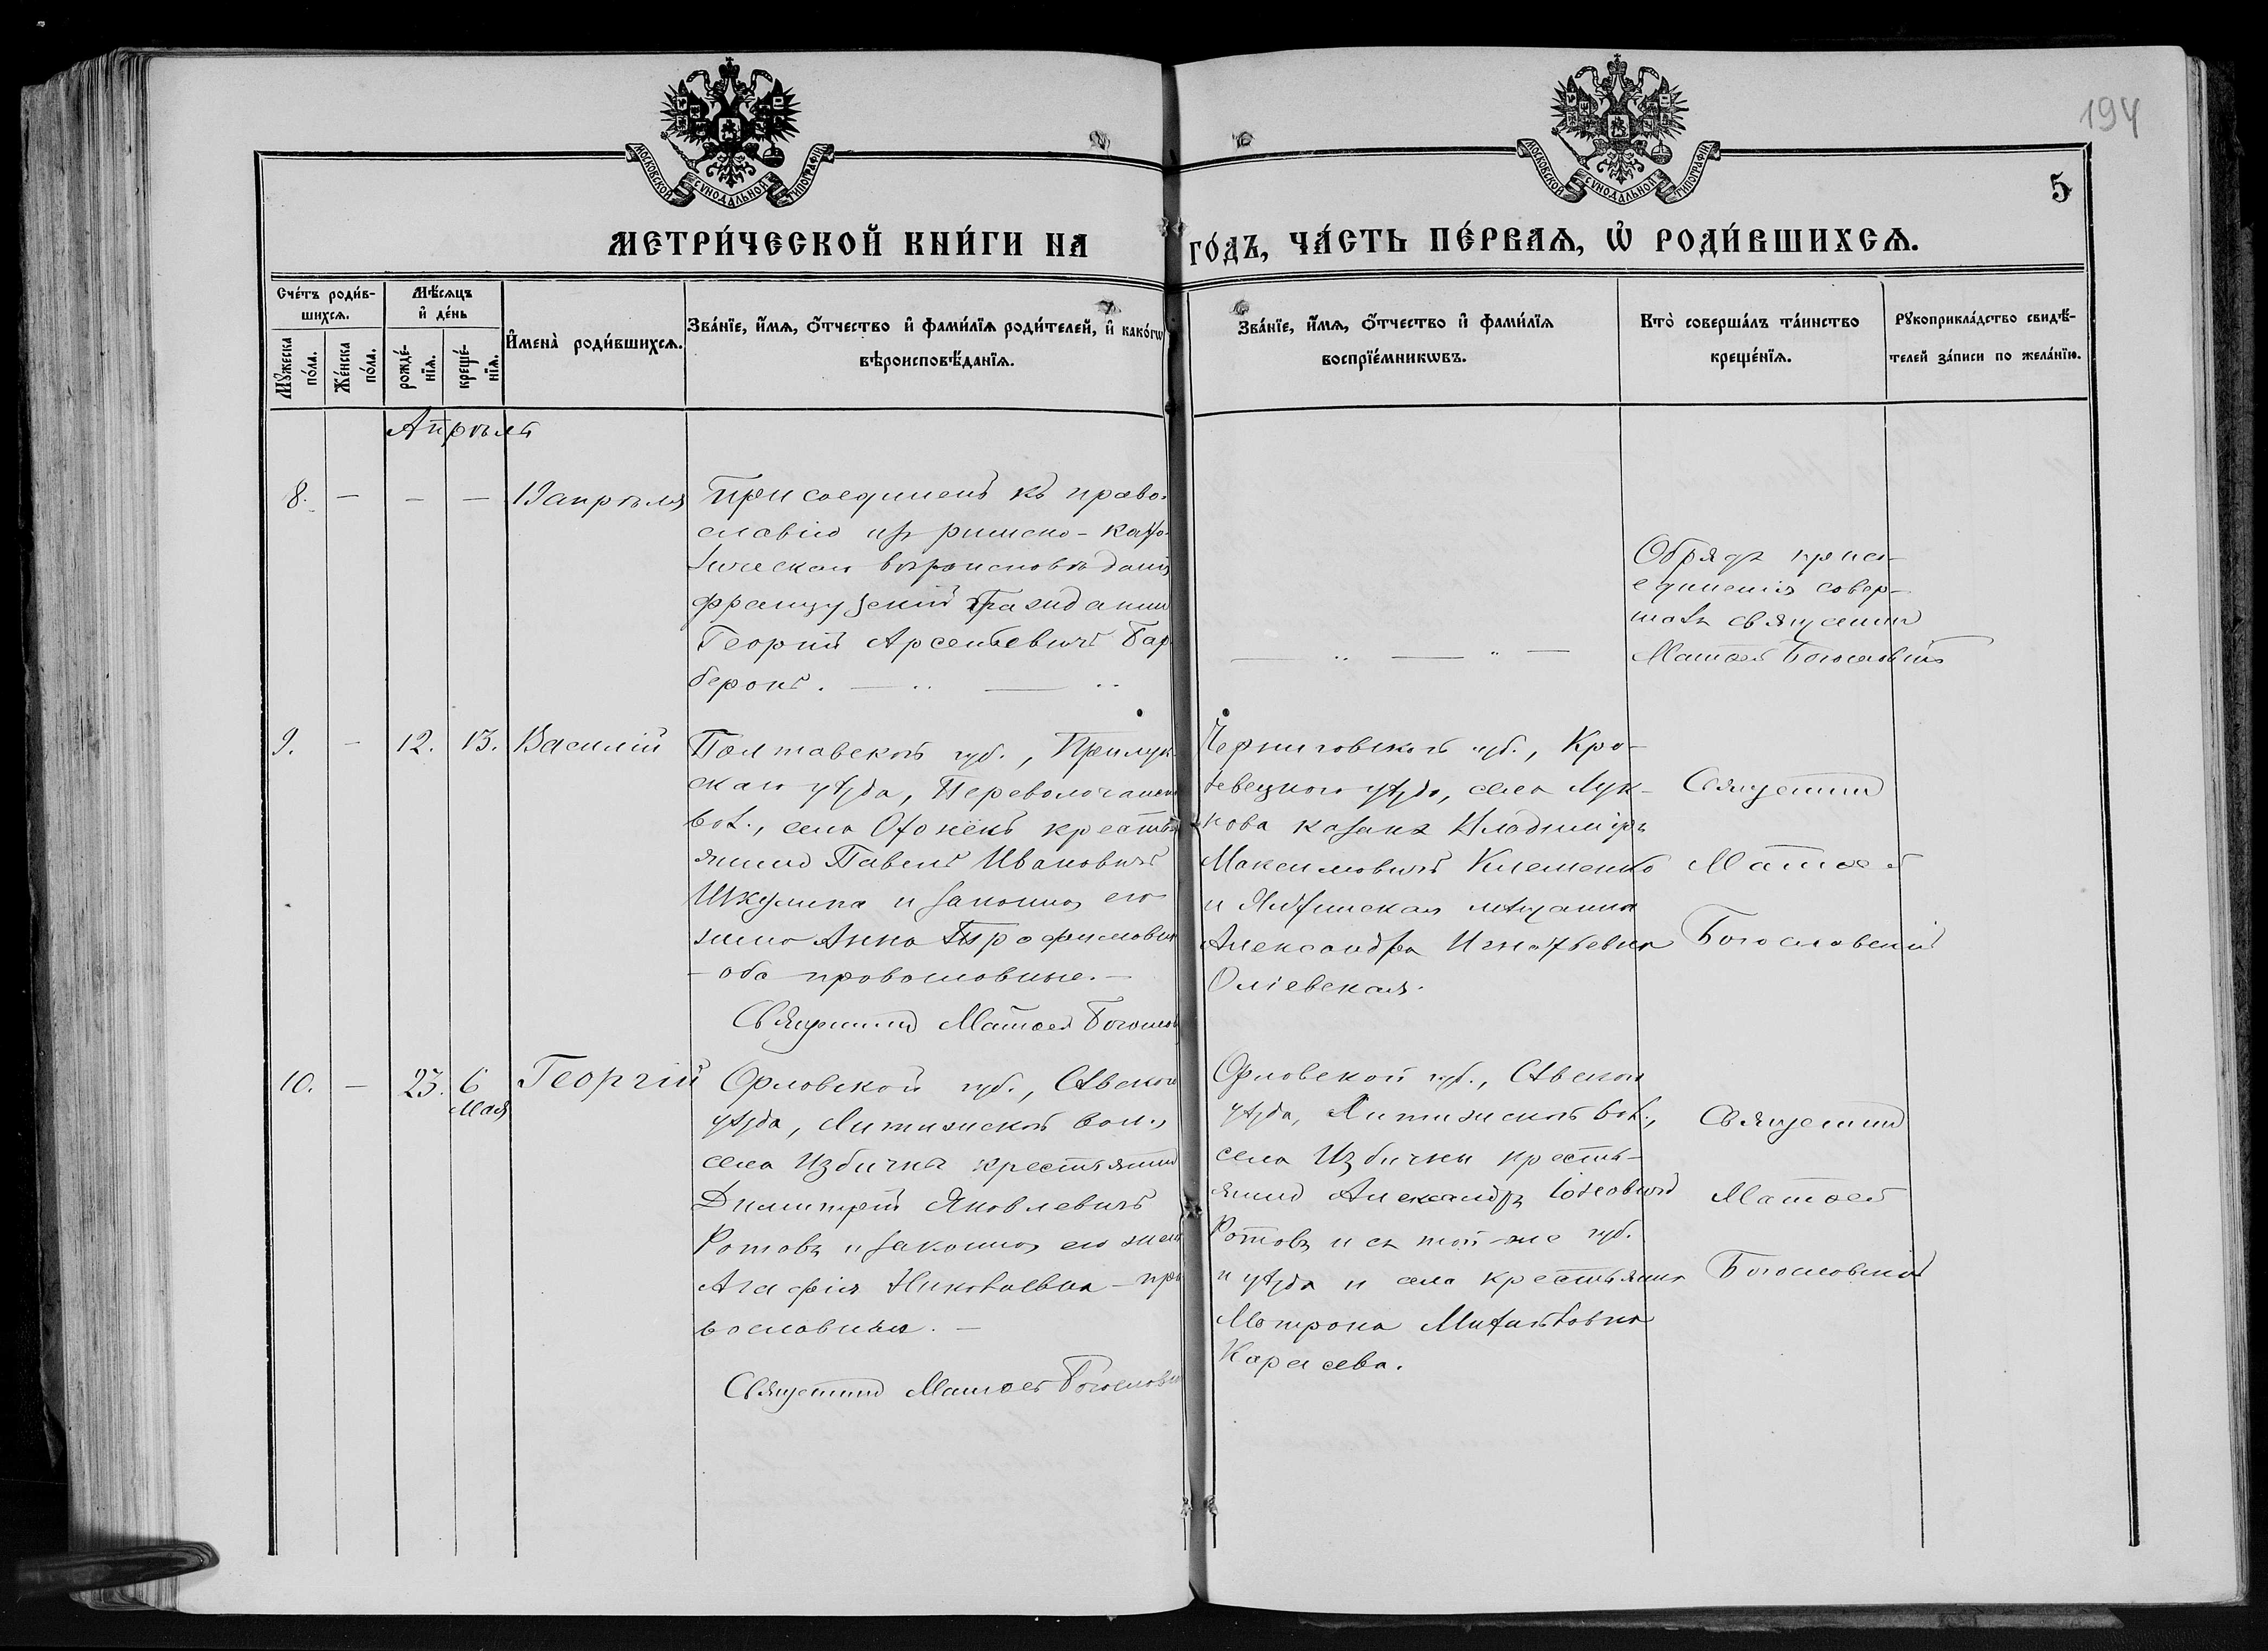 194
МОСКОВСКОЙ СѴНОДАЛЬНОЙ ТИПОГРАФІИ
МОСКОВСКОЙ СѴНОДАЛЬНОЙ ТИПОГРАФІИ
5
МЕТРИ́ЧЕСКОЙ КНИ́ГИ НА ГО́ДЪ, ЧА́СТЬ ПЕ́РВАѦ, Ѡ҆ РОДИ́ВШИХСѦ.
Сче́тъ роди́в-
шихсѧ.
Мꙋ́жеска
по́ла.
Же́нска
по́ла.
Мѣ́сѧцъ
и҆ де́нь
рожде́-
нїѧ.
креще́-
нїѧ.
И҆мена̀ роди́вшихсѧ.
Зва́нїе, и҆́мѧ, ѻ҆́тчество и҆ фами́лїѧ роди́телей, и҆ како́гѡ
вѣроисповѣ́данїѧ.
Зва́нїе, и҆́мѧ, ѻ҆́тчество и҆ фами́лїѧ
воспрїе́мникѡвъ.
Кто̀ соверша́лъ та́инство
креще́нїѧ.
Рꙋкоприкла́дство свидѣ́-
телей за́писи по жела́нїю.
Апрѣля
8. — — — 19 апрѣля
Присоединенъ къ право-
славію изъ римско-като-
лическаго вѣроисповѣданія
французскій гражданинъ
Георгій Арсеньевичъ Бар-
беронъ.
Обрядъ присо-
единенія совер-
шалъ священникъ
Матѳей Богословскій
9. — 12. 13. Василій
Полтавской губ., Прилук-
скаго уѣзда, Переволочанской
вол., села кресть-
янинъ Павелъ Ивановичъ
Шкулипа и законная его
жена Анна Трофимовна
- оба православные. —
Священникъ Матѳей Богословскій
Черниговской губ., Кро-
левецкаго уѣзда, села Лук-
нова казакъ Владиміръ
Максимовичъ Клеменко
и Ялтинская мѣщанка
Александра Игнатьевна
Оліевская.
Священникъ
Матѳей
Богословскій
10. — 23. 6 Георгій
Мая
Орловской губ., Сѣвскаго
уѣзда, Литижской вол.,
села Избичня крестьянинъ
Димитрій Яковлевичъ
Ротовъ и законная его жена
Агафія Николаевна - пра-
вославные. —
Священникъ Матѳей Богословскій
Орловской губ., Сѣвскаго
уѣзда, Литижской вол.,
села Избични кресть-
янинъ Александръ
Ротовъ и съ той-же губ.
и уѣзда и села крестьянка
Матрона Михайловна
Карасева.
Священникъ
Матѳей
Богословскій